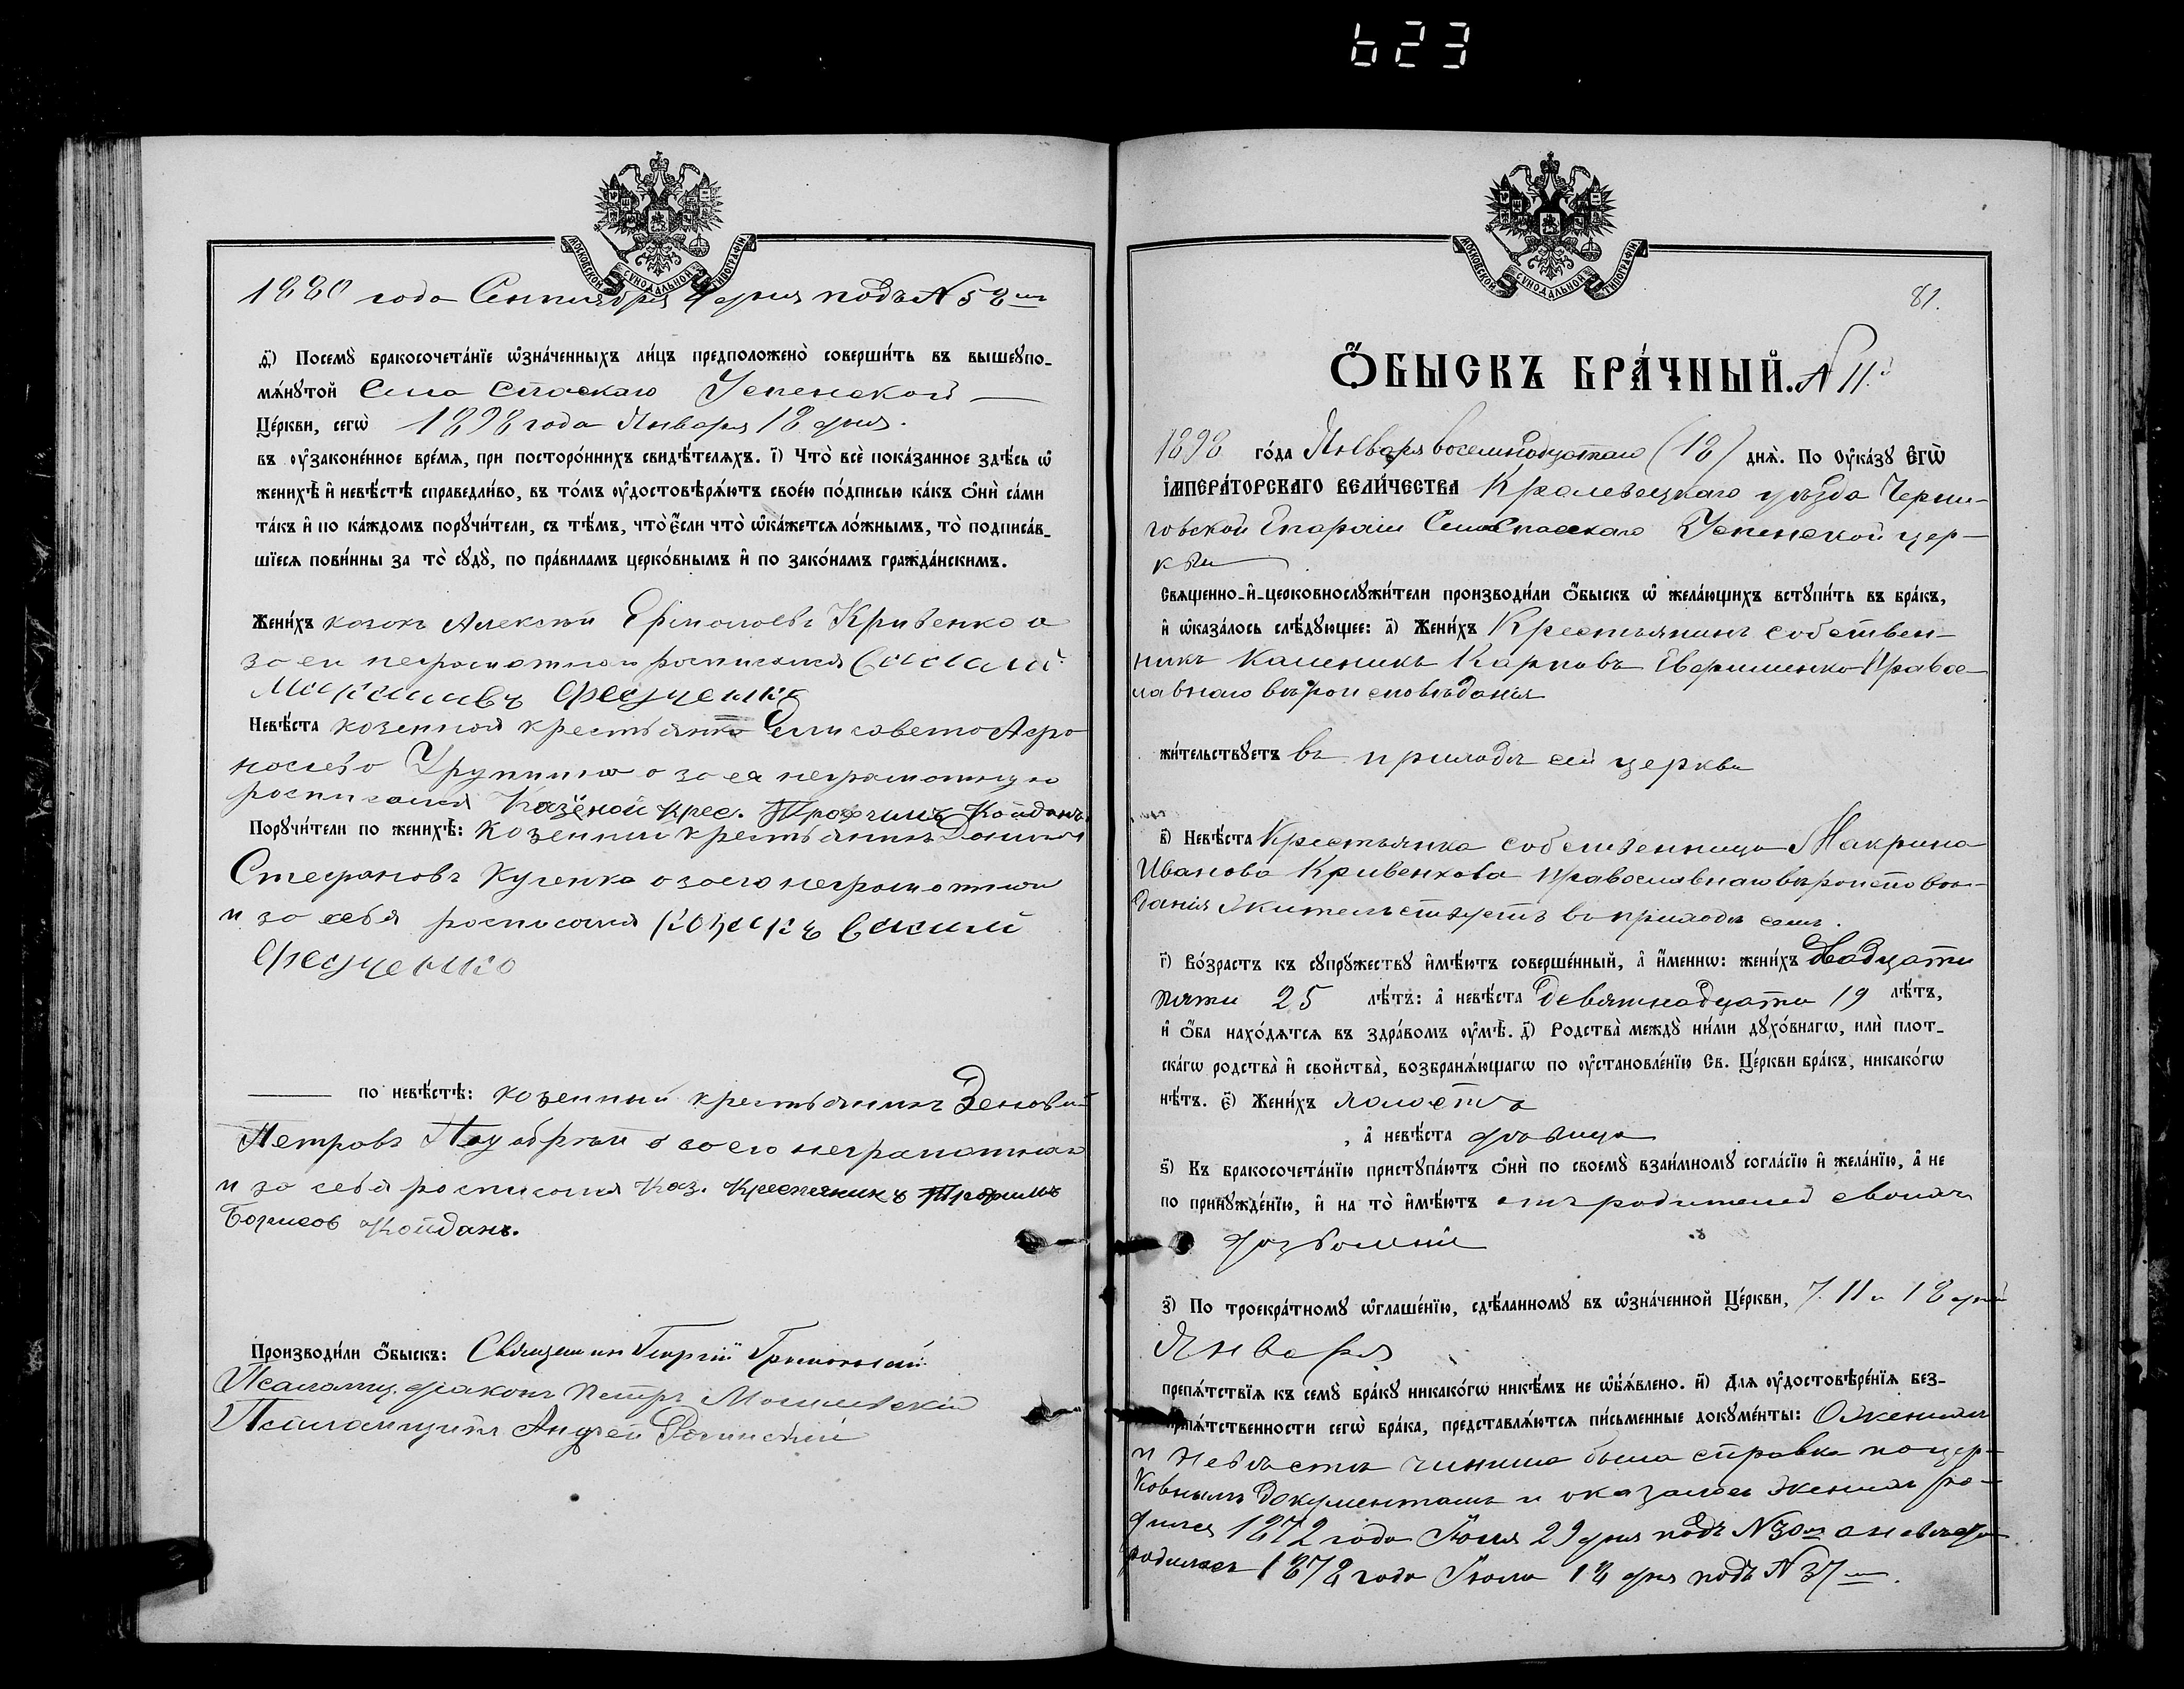 623
МОСКОВСКОЙ СѴНОДАЛЬНОЙ ТИПОГРАФІИ
1880 года Сентября 4 дня подъ № 58мъ
д҃і) Посемꙋ̀ бракосочета́нїе ѡ҆зна́ченныхъ ли́цъ предположено̀ соверши́ть въ вышеꙋпо-
мѧ́нꙋтой Села Спаскаго Успенской
Це́ркви, сегѡ̀ 1898 года Января 18 дня.
въ ᲂу҆законе́нное вре́мѧ, при посторо́ннихъ свидѣ́телѧхъ. і҃) Что̀ всѐ пока́занное здѣ́сь ѡ҆
женихѣ̀ и҆ невѣ́стѣ справедли́во, въ то́мъ ᲂу҆достовѣрѧ́ютъ свое́ю по́дписью ка́къ ѻ҆нѝ са́ми
та́къ и҆ по ка́ждомъ порꙋчи́тели, съ тѣ́мъ, что̀ є҆́сли что̀ ѡ҆ка́жетсѧ ло́жнымъ, то̀ подписа́в-
шїесѧ пови́нны за то̀ сꙋдꙋ̀, по пра́виламъ церко́внымъ и҆ по зако́намъ гражда́нскимъ.
Жени́хъ козакъ Алексѣй Ермолаевъ Кривенко а
за его неграмотнаго росписался
Невѣ́ста козенная крестьянка Елисавета Афа
носьева а за ея неграмотную
росписался Казеной Крес. Трофимъ Койданъ
Порꙋчи́тели по женихѣ̀: Козенный крестьянинъ
Стефановъ Кученко а за его неграмотнаго
и за себя росписался козакъ
по невѣ́стѣ: козенный крестьянинъ Зеновій
Петровъ а за его неграмотнаго
и за себя росписался Каз. Крестянинъ Трофимъ
Борисов Койданъ.
Производи́ли ѻ҆́быскъ: Священникъ Георгій
Псаломщ. діаконъ Петръ
Псаломщикъ Андрей
МОСКОВСКОЙ СѴНОДАЛЬНОЙ ТИПОГРАФІИ
81.
Ѻ҆́БЫСКЪ БРА́ЧНЫЙ. № 11.
1898 го́да Января восемнадцатаго (18) днѧ̀. По Оу҆ка́зꙋ Є҆гѡ̀
і҆мпера́торскагѡ вели́чества Кролевецкаго уѣзда Черни-
говской Епархіи Села Спасскаго Успенской цер-
кви
Свѧще́нно-и҆-церковнослꙋжи́тели производи́ли ѻ҆́быскъ ѡ҆ жела́ющихъ встꙋпи́ть въ бра́къ,
и҆ ѡ҆каза́лось слѣ́дꙋющее: а҃) Жени́хъ Крестьянинъ собствен-
никъ Каленикъ Карповъ Евфименко Право-
славнаго вѣроисповѣданія
жи́тельствꙋетъ въ приходѣ сей церкви
в҃) Невѣ́ста Крестьянка собственница Макрина
Иванова Кривенкова православнаго вѣроисповѣ-
данія Жительствуетъ въ приходѣ семъ.
г҃) Во́зрастъ къ сꙋпрꙋ́жествꙋ и҆мѣ́ютъ соверше́нный, а҆ и҆́меннѡ: жени́хъ двадцати
пяти 25 лѣ́тъ: а҆ невѣ́ста девятнадцати 19 лѣ́тъ,
и҆ ѻ҆́ба нахо́дѧтсѧ въ здра́вомъ ᲂу҆мѣ̀. д҃) Родства̀ междꙋ̀ ни́ми дꙋхо́внагѡ, илѝ плот-
ска́гѡ родства̀ и҆ свойства̀, возбранѧ́ющагѡ по ᲂу҆становле́нїю Св. Це́ркви бра́къ, никако́гѡ
нѣ́тъ. є҃) Жени́хъ холостъ
, а҆ невѣ́ста дѣвица
ѕ҃) Къ бракосочета́нїю пристꙋпа́ютъ ѻ҆нѝ по своемꙋ̀ взаи́мномꙋ согла́сїю и҆ жела́нїю, а҆ не
по принꙋжде́нїю, и҆ на то̀ и҆мѣ́ютъ отъ родителей своихъ
дозволеніе
з҃) По троекра́тномꙋ ѡ҆глаше́нїю, сдѣ́ланномꙋ въ ѡ҆зна́ченной Це́ркви, 7. 11 и 18 дней
Января
препѧ́тствїѧ къ семꙋ̀ бра́кꙋ никако́гѡ никѣ́мъ не ѡ҆б̾ѧ́влено. и҃) Для ᲂу҆достовѣре́нїѧ без-
препѧ́тственности сегѡ̀ бра́ка, представлѧ́ютсѧ пи́сьменные докꙋме́нты: О женихѣ
и невѣстѣ чинима была справка по цер-
ковнымъ документамъ и оказалось женихъ ро-
дился 1872 года Іюля 29 дня подъ № 30мъ а невѣста
родилась 1878 года Іюля 18 дня подъ № 37мъ.